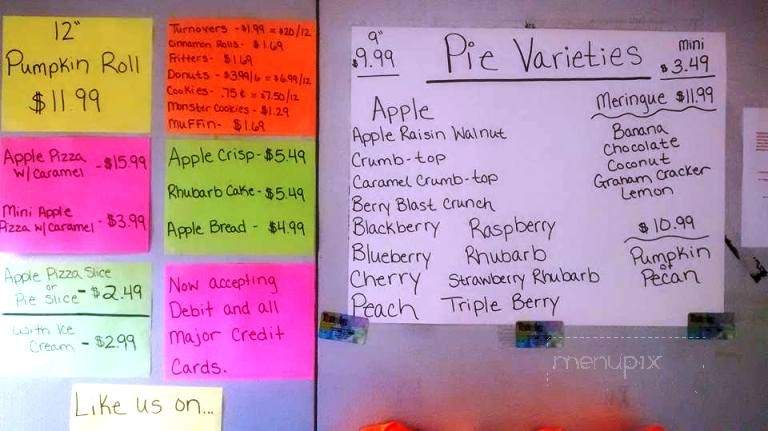 12"
Pumpkin Roll
$11.99
Turnovers - $1.99 = $20/12
Cinnamon Rolls - $1.69
Fritters - $1.69
Donuts - $3.99/6 = $6.99/12
Cookies - .75¢ = $7.50/12
Monster Cookies - $1.29
Muffin - $1.69
Apple Pizza w/Caramel - $15.99
Mini Apple Pizza w/Caramel - $3.99
Apple Crisp - $5.49
Rhubarb Cake - $5.49
Apple Bread - $4.99
Apple Pizza Slice
or
Pie Slice - $2.49
With Ice
Cream - $2.99
Now accepting
Debit and all
Major Credit
Cards.
Like us on...
9"
$9.99
Pie Varieties
mini
$3.49
Apple
Apple Raisin Walnut
Crumb-top
Caramel Crumb-top
Berry Blast Crunch
Blackberry Raspberry
Blueberry Rhubarb
Cherry Strawberry Rhubarb
Peach Triple Berry
Meringue $11.99
Banana
Chocolate
Coconut
Graham Cracker
Lemon
$10.99
Pumpkin
or
Pecan
menupix